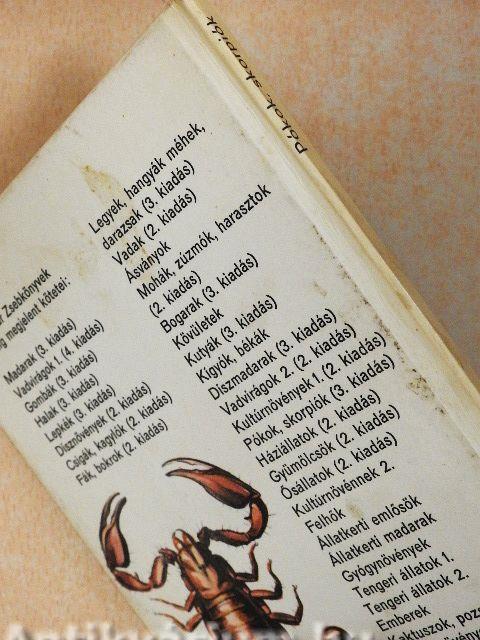 Pókok, skorpiók
Zsebkönyvek
megjelent kötetei:
Madarak (3. kiadás)
Vadvirágok 1. (4. kiadás)
Gombák (3. kiadás)
Halak (3. kiadás)
Lepkék (3. kiadás)
Dísznövények (2. kiadás)
Csigák, kagylók (2. kiadás)
Fák, bokrok (2. kiadás)
Legyek, hangyák méhek,
darazsak (3. kiadás)
Vadak (2. kiadás)
Ásványok
Mohák, zúzmók, harasztok
(2. kiadás)
Bogarak (3. kiadás)
Kövületek
Kutyák (3. kiadás)
Kígyók, békák
Díszmadarak (3. kiadás)
Vadvirágok 2. (2. kiadás)
Kultúrnövények 1. (2. kiadás)
Pókok, skorpiók (3. kiadás)
Háziállatok (2. kiadás)
Gyümölcsök (2. kiadás)
Ősállatok (2. kiadás)
Kultúrnövénnek 2.
Felhők
Állatkerti emlősök
Állatkerti madarak
Gyógynövények
Tengeri állatok 1.
Tengeri állatok 2.
Emberek
Kaktuszok, pozs